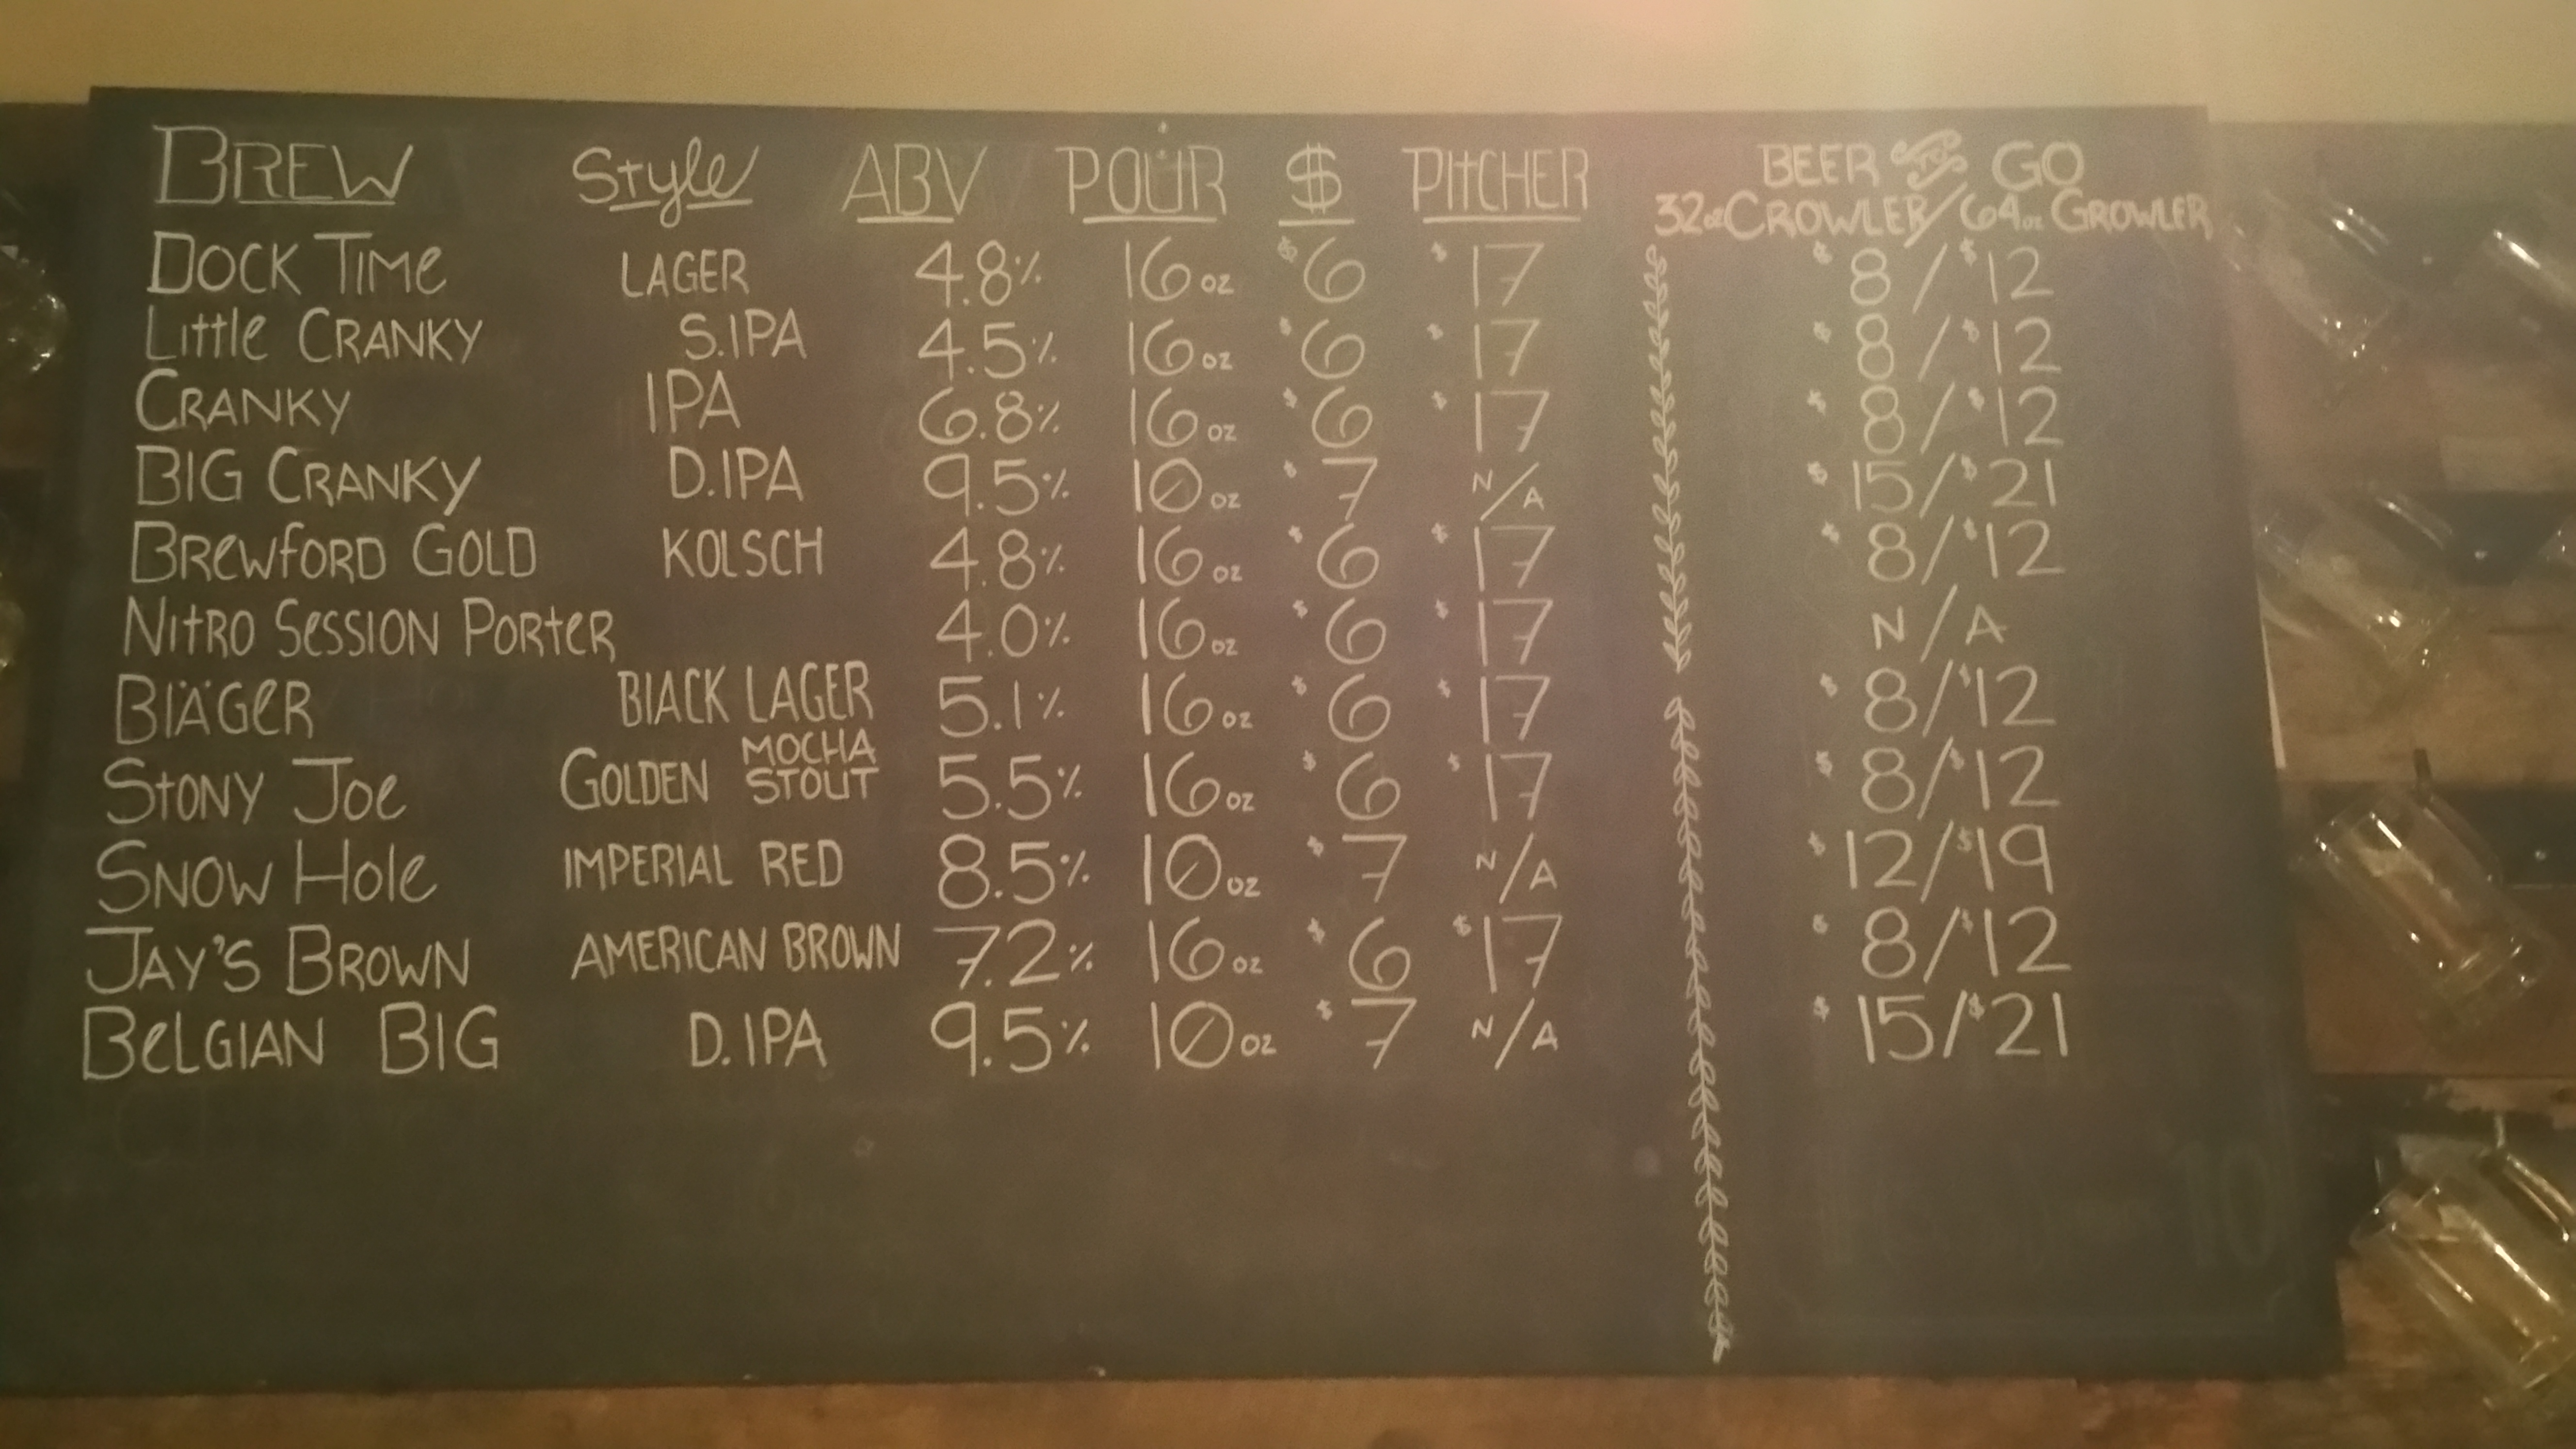 BREW Style ABV POUR $ PITCHER BEER TO GO
32oz CROWLER/64oz GROWLER
DOCK TIME LAGER 4.8% 16oz $6 $17 $8/$12
LITTLE CRANKY S.IPA 4.5% 16oz $6 $17 $8/$12
CRANKY IPA 6.8% 16oz $6 $17 $8/$12
BIG CRANKY D.IPA 9.5% 10oz $7 N/A $15/$21
BREWFORD GOLD KOLSCH 4.8% 16oz $6 $17 $8/$12
NITRO SESSION PORTER 4.0% 16oz $6 $17 N/A
BLÄGER BLACK LAGER 5.1% 16oz $6 $17 $8/$12
STONY JOE GOLDEN MOCHA STOUT 5.5% 16oz $6 $17 $8/$12
SNOW HOLE IMPERIAL RED 8.5% 10oz $7 N/A $12/$19
JAY'S BROWN AMERICAN BROWN 7.2% 16oz $6 $17 $8/$12
BELGIAN BIG D.IPA 9.5% 10oz $7 N/A $15/$21